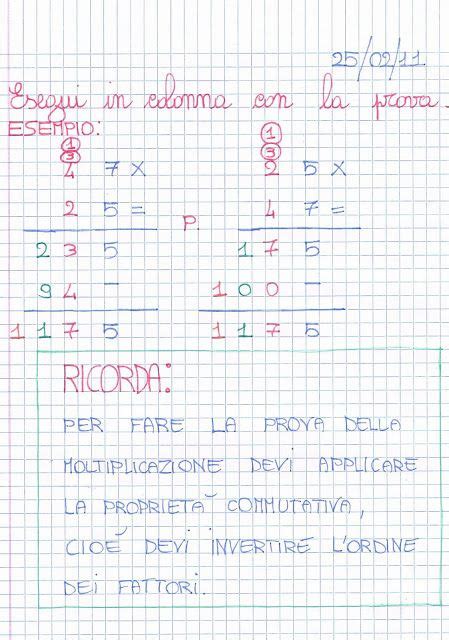 25/02/11
Esegui in colonna con la prova.
ESEMPIO:
1 1
3 3
4 7 x 2 5 x
2 5 = P. 4 7 =
2 3 5 1 7 5
9 4 – 1 0 0 –
1 1 7 5 1 1 7 5
RICORDA:
PER FARE LA PROVA DELLA
MOLTIPLICAZIONE DEVI APPLICARE
LA PROPRIETÀ COMMUTATIVA,
CIOÈ DEVI INVERTIRE L'ORDINE
DEI FATTORI.